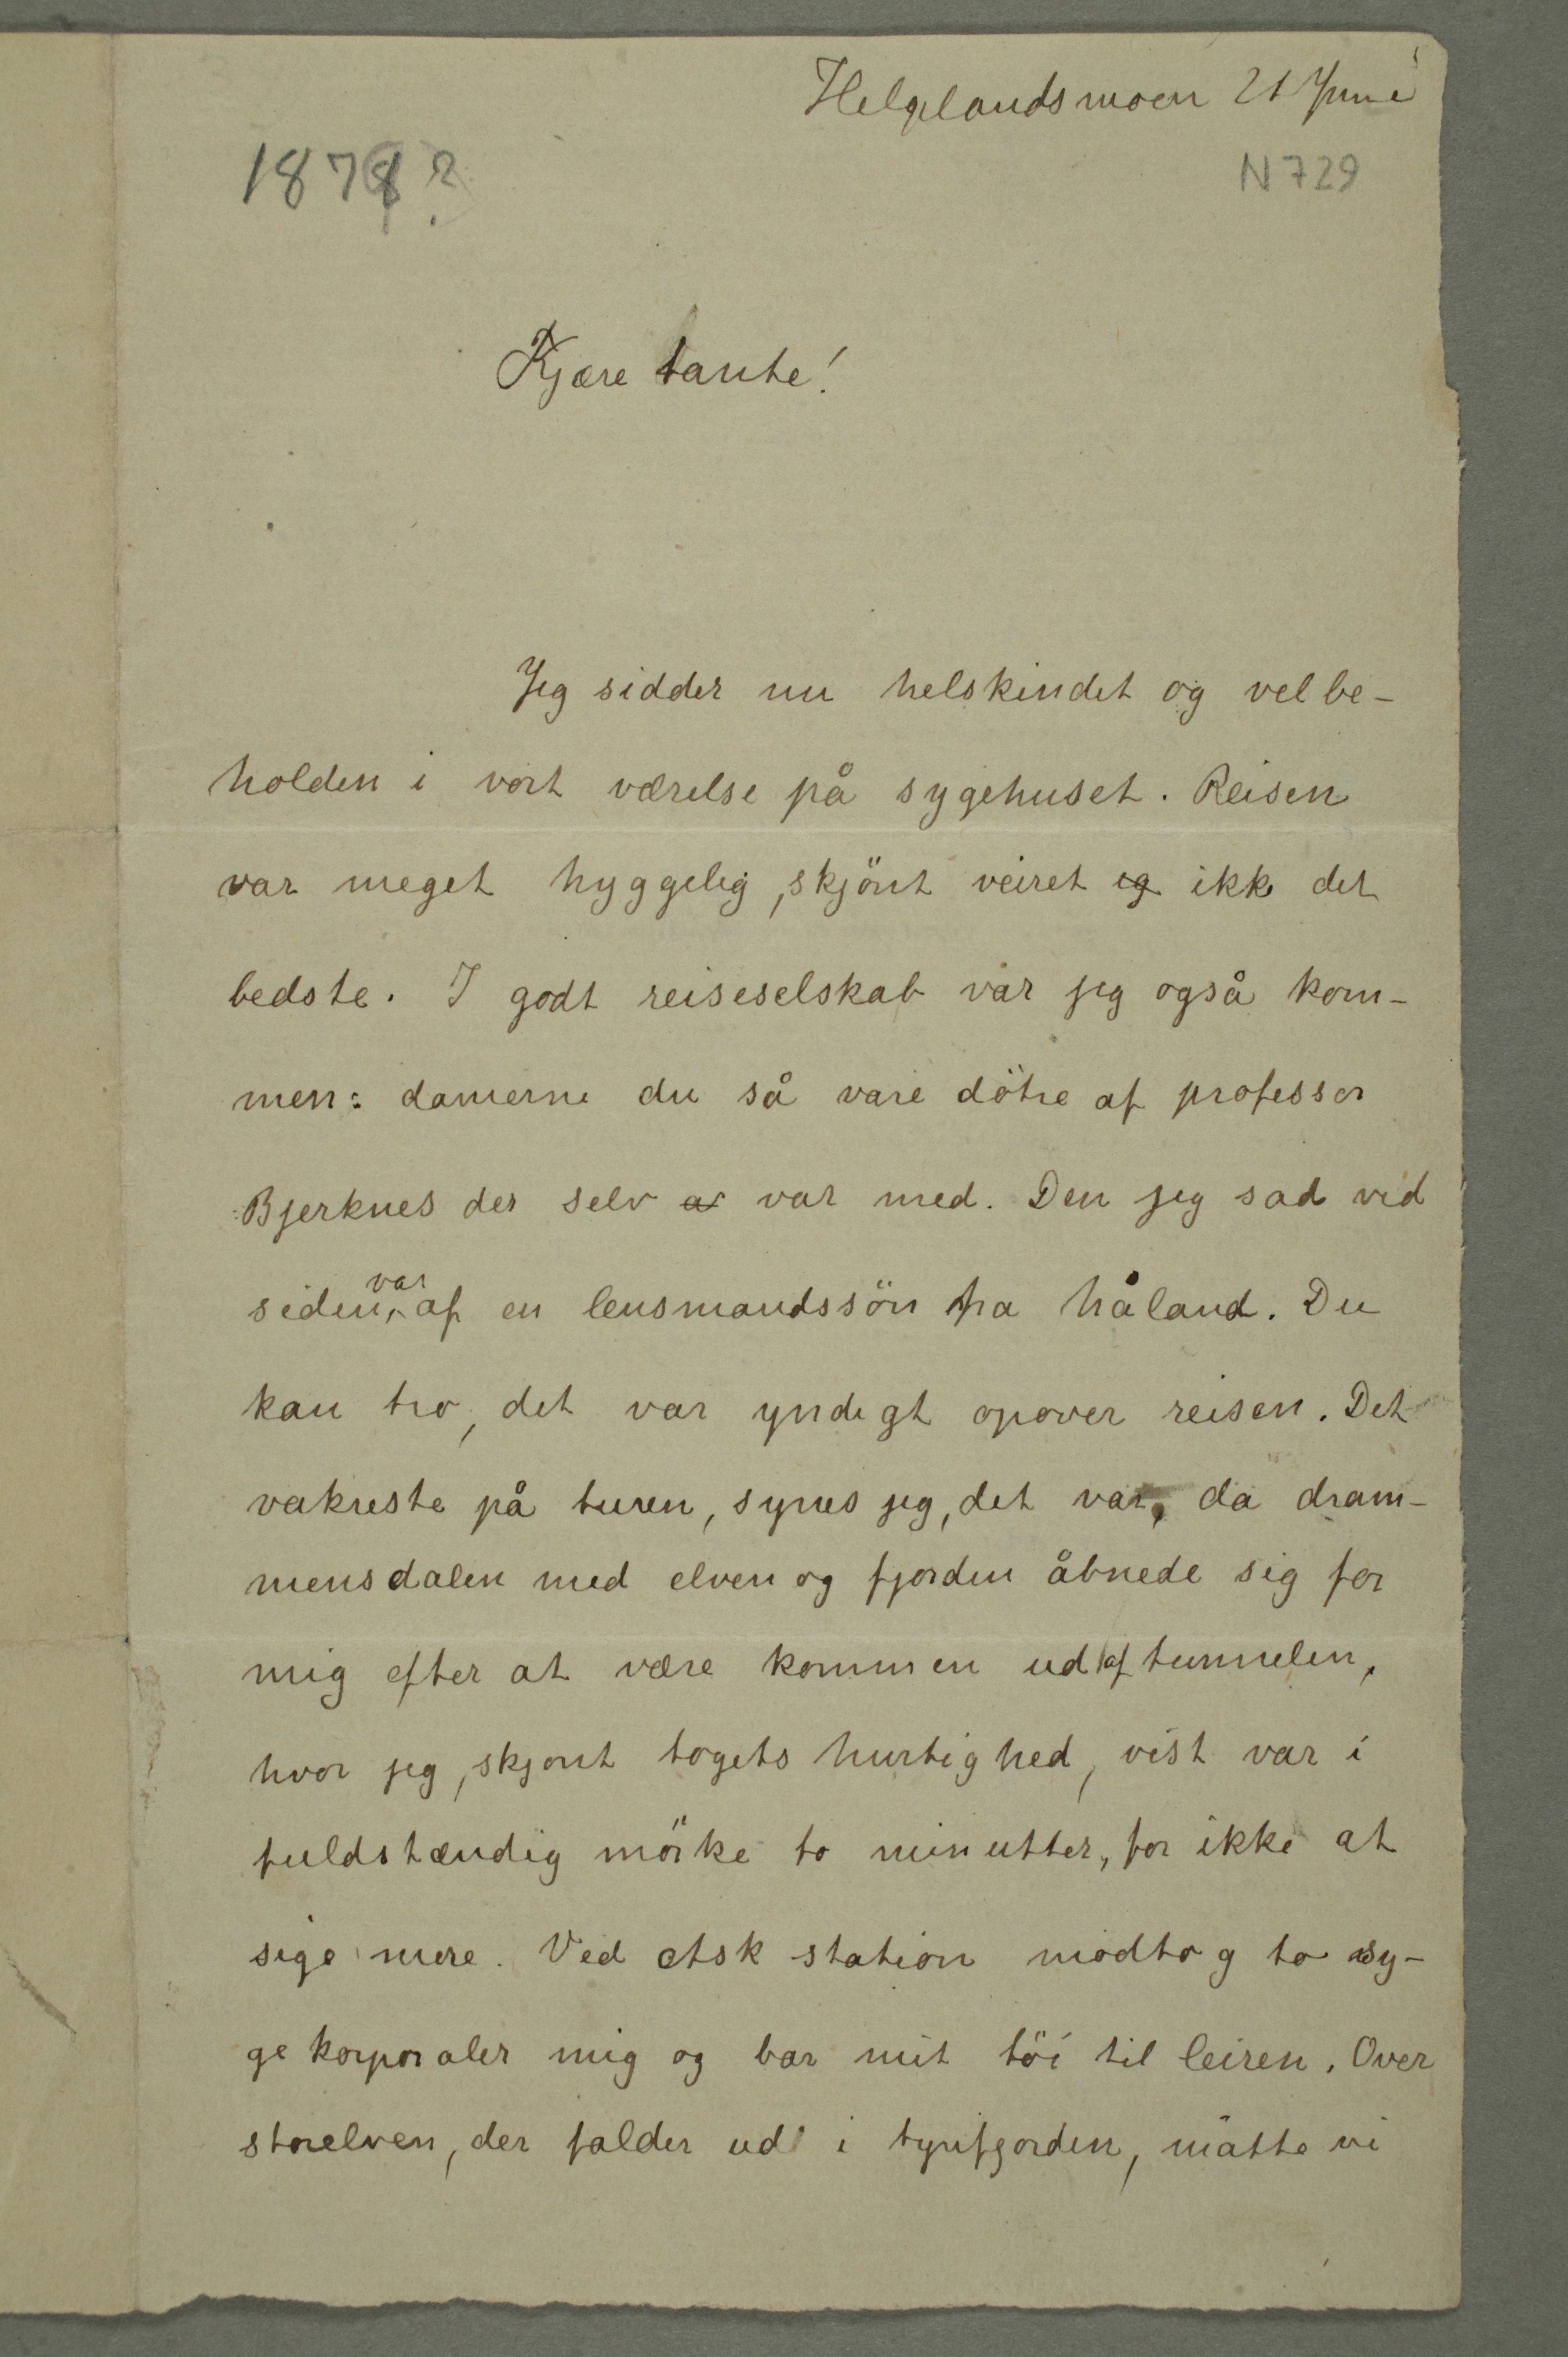 Helgelandsmoen 21 Juni
187
N 729
Kjære tante!
Jeg sidder nu helskindet og velbe-
holden i vort værelse på sygehuset. Reisen
var meget hyggelig, skjönt veiret eg ikke det
bedste. I godt reiseselskab var jeg også kom-
men: damerne du så vare dötre af professor
Bjerknes der selv a var med. Den jeg sad ved
siden, af var en lensmandssön fra håland. Du
kan tro, det var yndigt opover reisen. Det
vakreste på turen, synes jeg, det var, da dram-
mensdalen med elven og fjorden åbnede sig for
mig efter at være kommen ud af tunnelen,
hvor jeg, skjont togets hurtighed, vist var i
fuldstændig mörke to minutter, for ikke at
sige mere. Ved Ask station modtog to sy-
gekorporaler mig og bar mit töi til leiren. Over
storelven, der falder ud i tyrifjorden, måtte vi